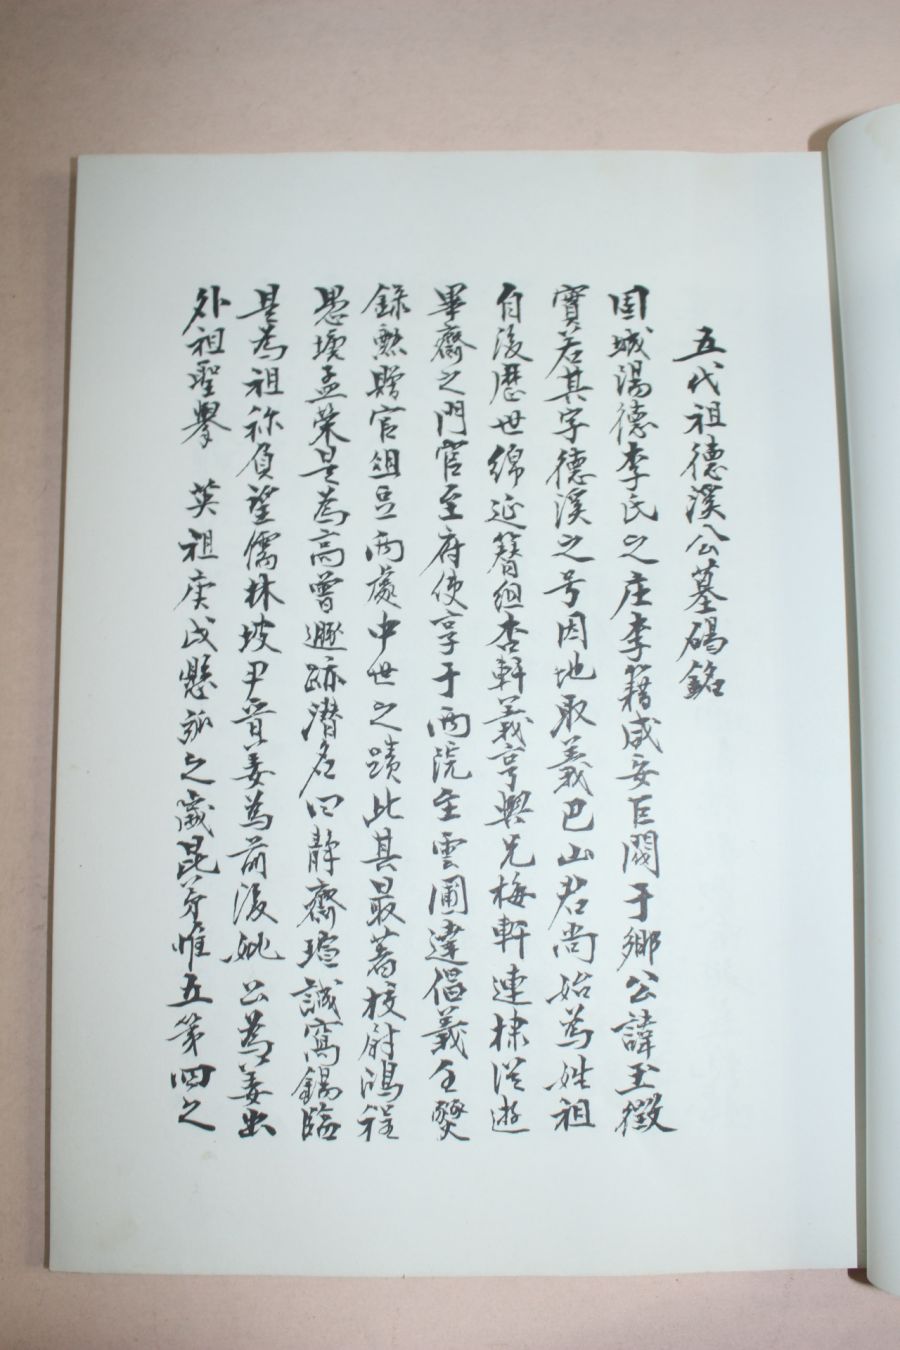 五代祖德溪公墓碣銘
固城湯德李氏之庄李籍咸安巨閥于鄉公諱玉徵
實若其字德溪之号因地取義巴山君尚始為姓祖
自後歷世綿延簪組杏軒義亨與兄梅軒連棣從遊
畢齋之門官至府使享于兩院至雲圃達倡義壬燹
錄勲贈官俎豆兩處中世之蹟此其最著校尉鴻程
愚㙻孟榮是為高曾遯跡潛名曰靜齋瑄誠窩錫臨
是為祖祢負望儒林坡尹晋姜為前後妣公為姜出
外祖聖擧 英祖庚戌懸弧之歲昆弟惟五第四之